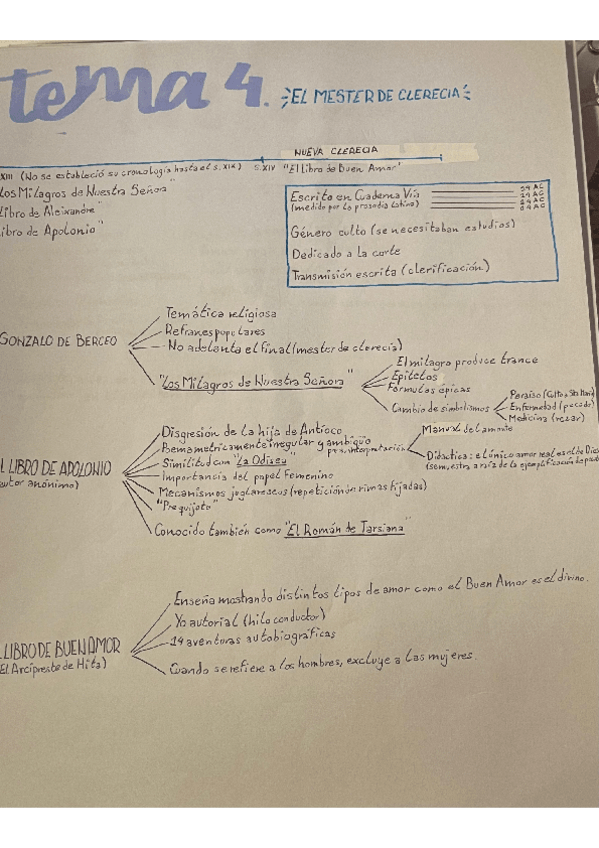 tema 4. EL MESTER DE CLERECIA
NUEVA CLERECIA
XIII (No se estableció su cronología hasta el s.XIX) S.XIV "El Libro de Buen Amor"
Los Milagros de Nuestra Señora"
Libro de Aleixandre"
Libro de Apolonio"
Escrito en Cuaderna Vía
(medido por la prosodia latina)
14 AC
14 AC
14 AC
Género culto (se necesitaban estudios)
Dedicado a la corte
Transmisión escrita (clerificación)
GONZALO DE BERCEO
Temática religiosa
Refranes populares
No adelanta el final (mester de clerecia)
"Los Milagros de Nuestra Señora"
El milagro produce trance
Epítetos
Fórmulas épicas
Cambio de simbolismos
Paraíso (Culto a Sta María)
Enfermedad (pecado)
Medicina (rezar)
L LIBRO DE APOLONIO
autor anónimo)
Disgresión de la hija de Antíoco
Bemametricamente irregular y ambigüo
interpretación
Manual del amante
Didactica: el único amor real es el de Dios
Similitud con "La Odisea"
Importancia del papel Femenino
Mecanismos juglarescos (repetición en rimas fijadas)
"Prequijote"
Conocido también como "El Román de Tarsiana"
LIBRO DE BUEN AMOR
El Arcipreste de Hita)
Enseña mostrando distintos tipos de amor como el Buen Amor es el divino.
Yo autorial (hilo conductor)
14 aventuras autobiográficas
Cuando se refiere a los hombres, excluye a las mujeres.